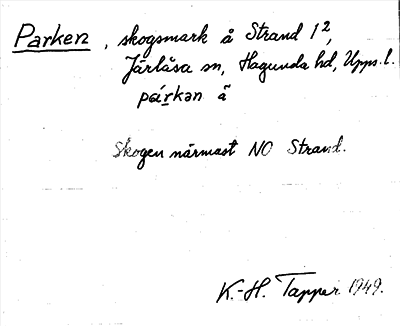 Parken, skogsmark å Strand 1²,
Järlåsa sn, Hagunda hd, Upps. l.
párkən å
Skogen närmast NO Strand.
K.-H. Tapper 1949.